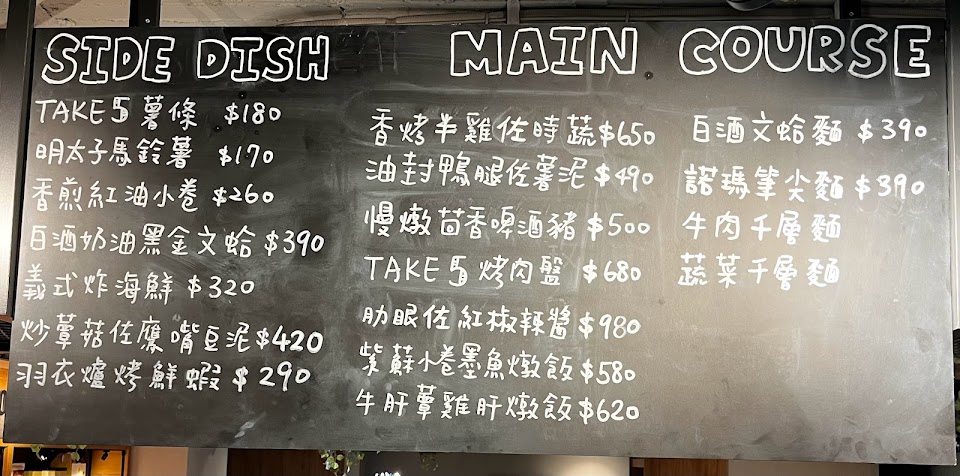 SIDE DISH
TAKE 5 薯條 $180
明太子馬鈴薯 $170
香煎紅油小卷 $260
白酒奶油黑金文蛤 $390
義式炸海鮮 $320
炒蕈菇佐鷹嘴豆泥 $420
羽衣爐烤鮮蝦 $290
MAIN COURSE
香烤半雞佐時蔬 $650
油封鴨腿佐薯泥 $490
慢燉茴香啤酒豬 $500
TAKE 5 烤肉盤 $680
肋眼佐紅椒辣醬 $980
紫蘇小卷墨魚燉飯 $580
牛肝蕈雞肝燉飯 $620
白酒文蛤麵 $390
諾瑪筆尖麵 $390
牛肉千層麵
蔬菜千層麵